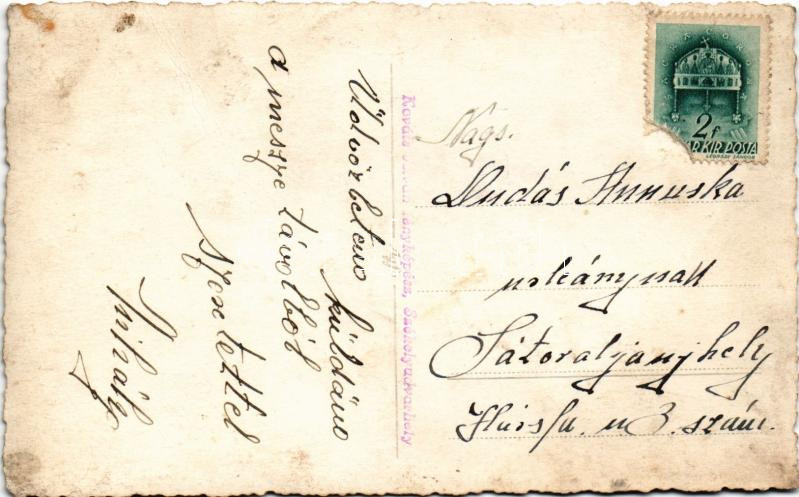 Üdvözletem küldöm
a messze távolból
szeretettel
Mihály
Kovács István fényképész, Székelyudvarhely
2f
MAGYAR KIR POSTA
LÉGRÁDY SÁNDOR
Nágs.
Dudás Annuska
urleánynak
Sátoraljaujhely
u 3. szám.